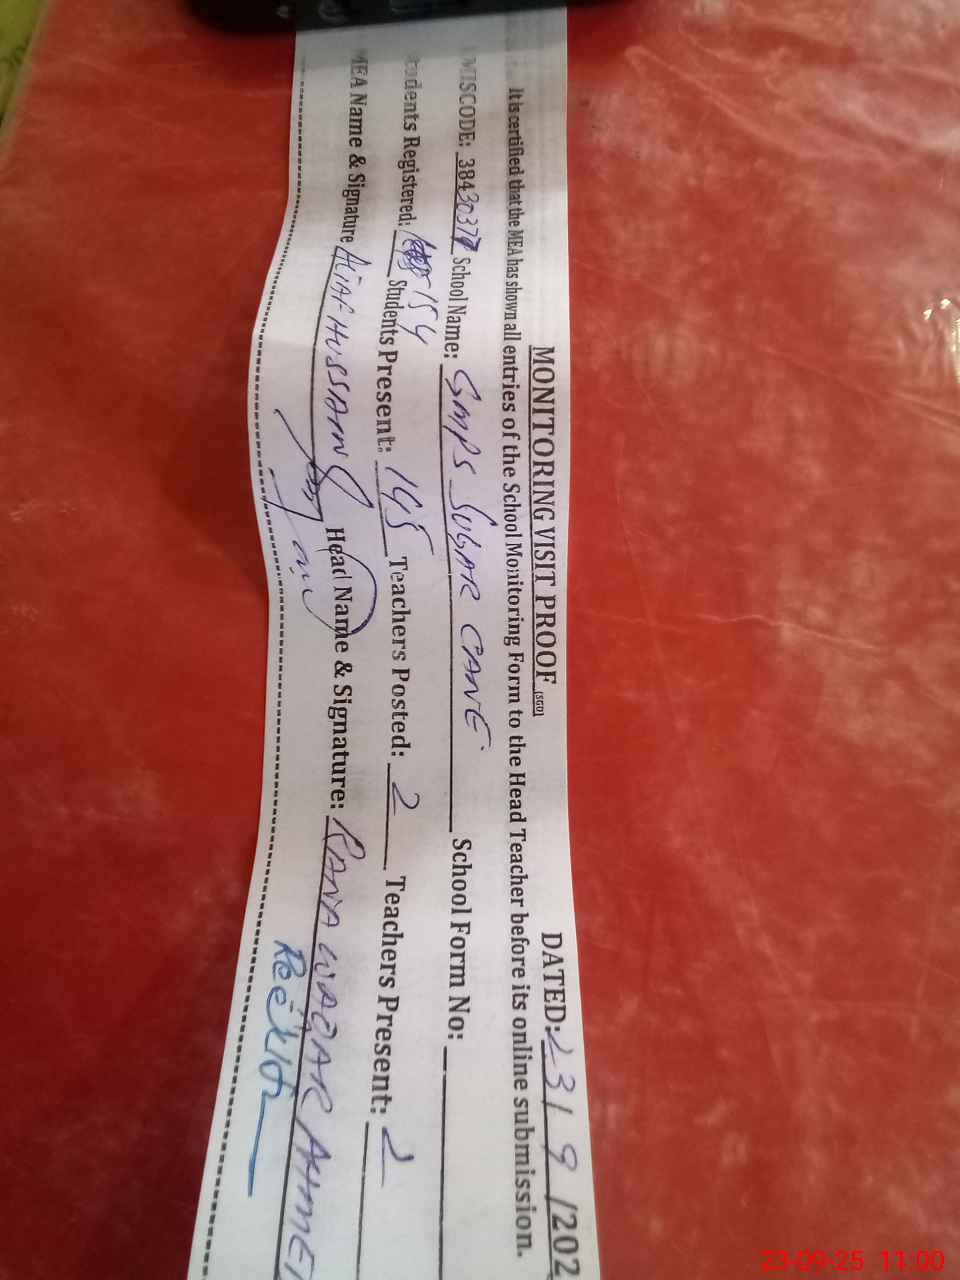 MONITORING VISIT PROOF (SGD) DATED: 23/9/202
It is certified that the MEA has shown all entries of the School Monitoring Form to the Head Teacher before its online submission.
MISCODE: 38430377 School Name: GMPS SUGAR CANE School Form No:
tudents Registered: 154 Students Present: 145 Teachers Posted: 2 Teachers Present: 2
MEA Name & Signature HUSSAIN Head Name & Signature: RANA WAQAR AHME
23-09-25 11:00